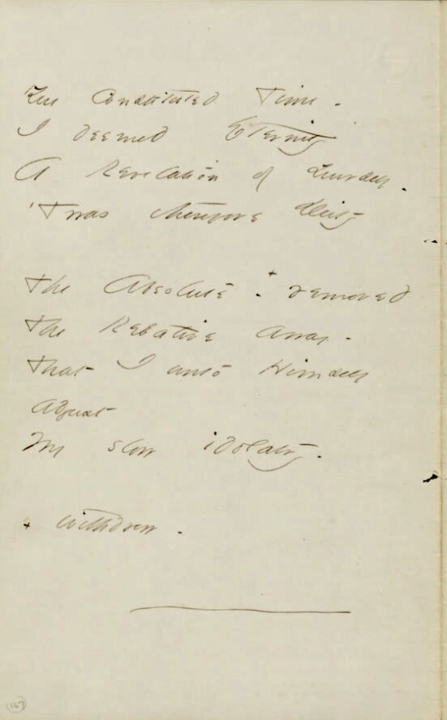 You constituted Time -
I deemed Eternity
A Revelation of Yourself -
'Twas therefore Deity
The Absolute - + removed
The Relative away -
That I unto Himself
adjust
My slow idolatry -
+ withdrew -